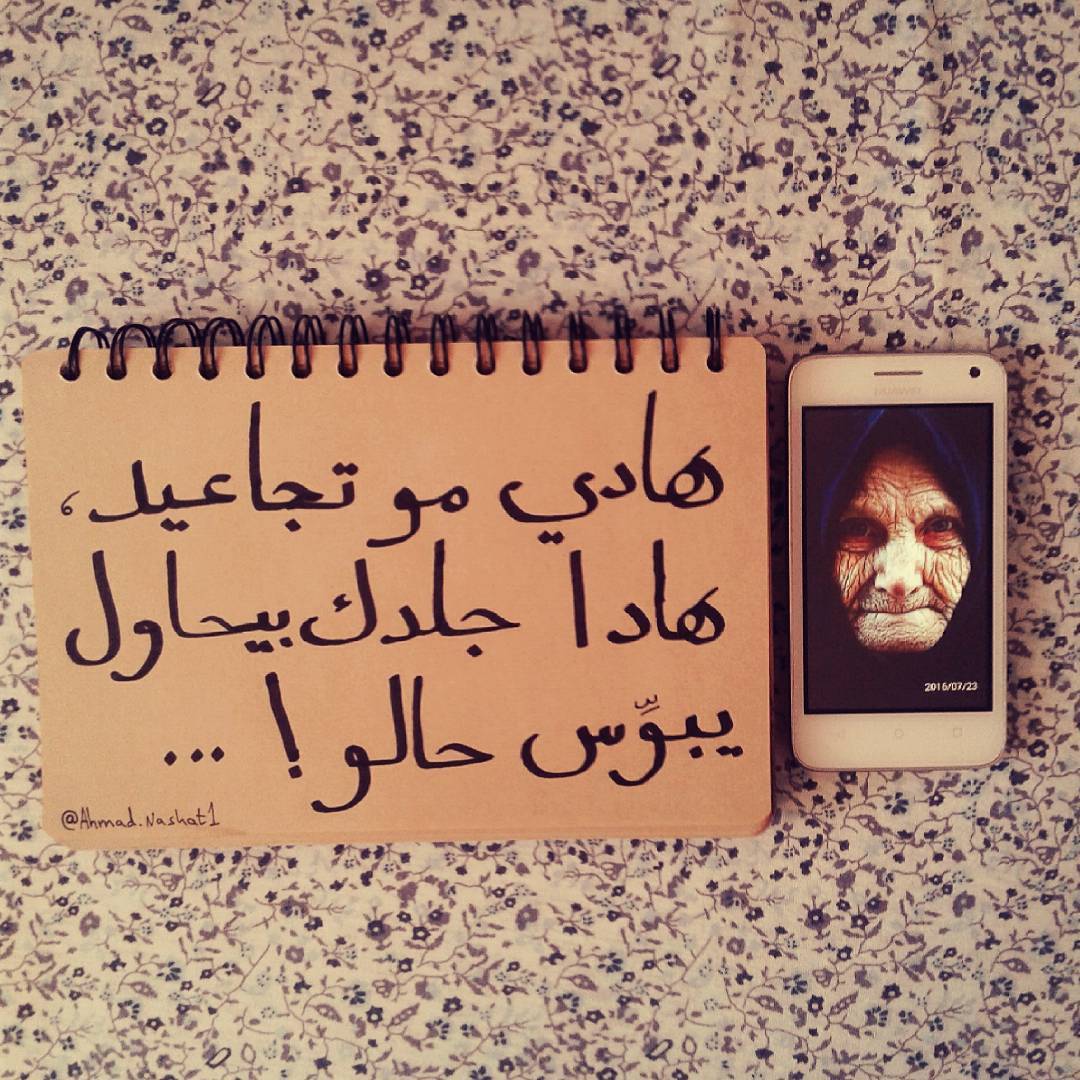 هادي مو تجاعيد،
هادا جلدك بيحاول
يبوِّس حالو ! ...
@Ahmad.Nashat1
HUAWEI
2016/07/23